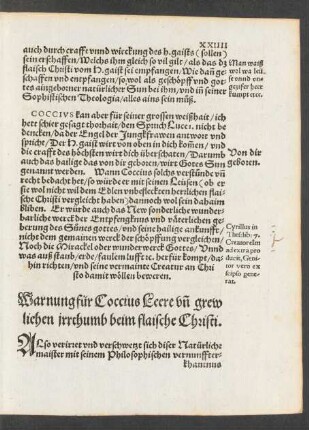 XXIIII
auch durch crafft vnnd wirckung des h. gaists (sollen)
sein erschaffen/ Welchs jhm gleich so vil gilt/ als das dz
flaisch Christi vom H. gaist sei empfangen. Wie dañ ge-
schaffen vnd empfangen/ so wol als geschöpff vnd got
tes aingeborner natürlicher Sun bei jhm/ vnd iñ seiner
Sophistischen Theologia/ alles ains sein můß.
Man waißt
wol wa bei
COCCIVS kan aber für seiner grossen weißhait/ ich
hett schier gesagt thorhait/ den Spruch Lucę i. nicht be
dencken/ da der Engel der Jungkfrawen antwort vnd
spricht/ Der H. gaist wirt von oben in dich kom̃en/ vnd
die crafft des höchsten wirt dich überschatten/ Darumb
auch das hailige das von dir geborn/ wirt Gottes Sun
genannt werden. Wann Coccius solchs verstünde vñ
recht bedacht het/ so würde er mit seinen Leüsen (ob er
sie wol nicht wil dem Edlen vnbeflecktē herrlichen flai-
sche Christi vergleicht haben) dannoch wol sein dahaim
bliben. Er würde auch das New sonderliche wunder-
barliche werck der Empfengknus vnd väterlichen ge-
berung des Sūnes gottes/ vnd seine hailige ankunfft/
nicht dem gemainen werck der schöpffung vergleichen/
Noch die Mirackel oder wunderwerck Gottes/ Vnnd
was auß staub/ erde/ faulem lufft ꝛc. herfür kompt/ da-
hin richten/ vnd seine vermainte Creatur an Chri
sto damit wöllen beweren.
Von dir
geboren.
Cyrillus in
Thesa. lib. 7.
Creator est
ad extra pro
ducit, Geni-
tor vero ex
seipso gene-
rat.
Warnung für Coccius Leere vñ grew
lichen jrrthumb beim flaische Christi.
Also verirret vnd verschwetzt sich diser Natürliche
maister mit seinem Philosophischen vernunffter-
khantnus